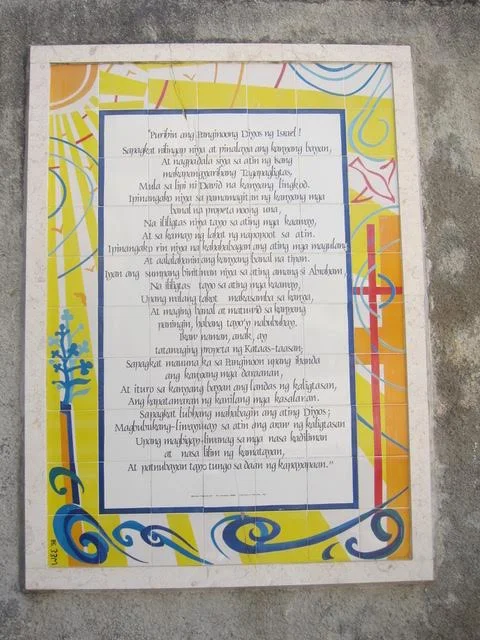 "Purihin ang Panginoong Diyos ng Israel!
Sapagkat nilingap niya at pinalaya ang kanyang bayan,
At nagpadala siya sa atin ng isang
makapangyarihang Tagapagligtas,
Mula sa lipi ni David na kanyang lingkod.
Ipinangako niya sa pamamagitan ng kanyang mga
banal na propeta noong una,
Na ililigtas niya tayo sa ating mga kaaway,
At sa kamay ng lahat ng napopoot sa atin.
Ipinangako rin niya na kahahabagan ang ating mga magulang,
At aalalahanin ang kanyang banal na tipan.
Iyan ang sumpang binitiwan niya sa ating amang si Abraham,
Na ililigtas tayo sa ating mga kaaway,
Upang walang takot makasamba sa kanya,
At maging banal at matuwid sa kanyang
paningin, habang tayo'y nabubuhay.
Ikaw naman, anak, ay
tatawaging propeta ng Kataas-taasan;
Sapagkat mauuna ka sa Panginoon upang ihanda
ang kanyang mga daraanan,
At ituro sa kanyang bayan ang landas ng kaligtasan,
Ang kapatawaran ng kanilang mga kasalanan.
Sapagkat lubhang mahabagin ang ating Diyos;
Magbubukang-liwayway sa atin ang araw ng kaligtasan
Upang magbigay-liwanag sa mga nasa kadiliman
at nasa lilim ng kamatayan,
At patnubayan tayo tungo sa daan ng kapayapaan."